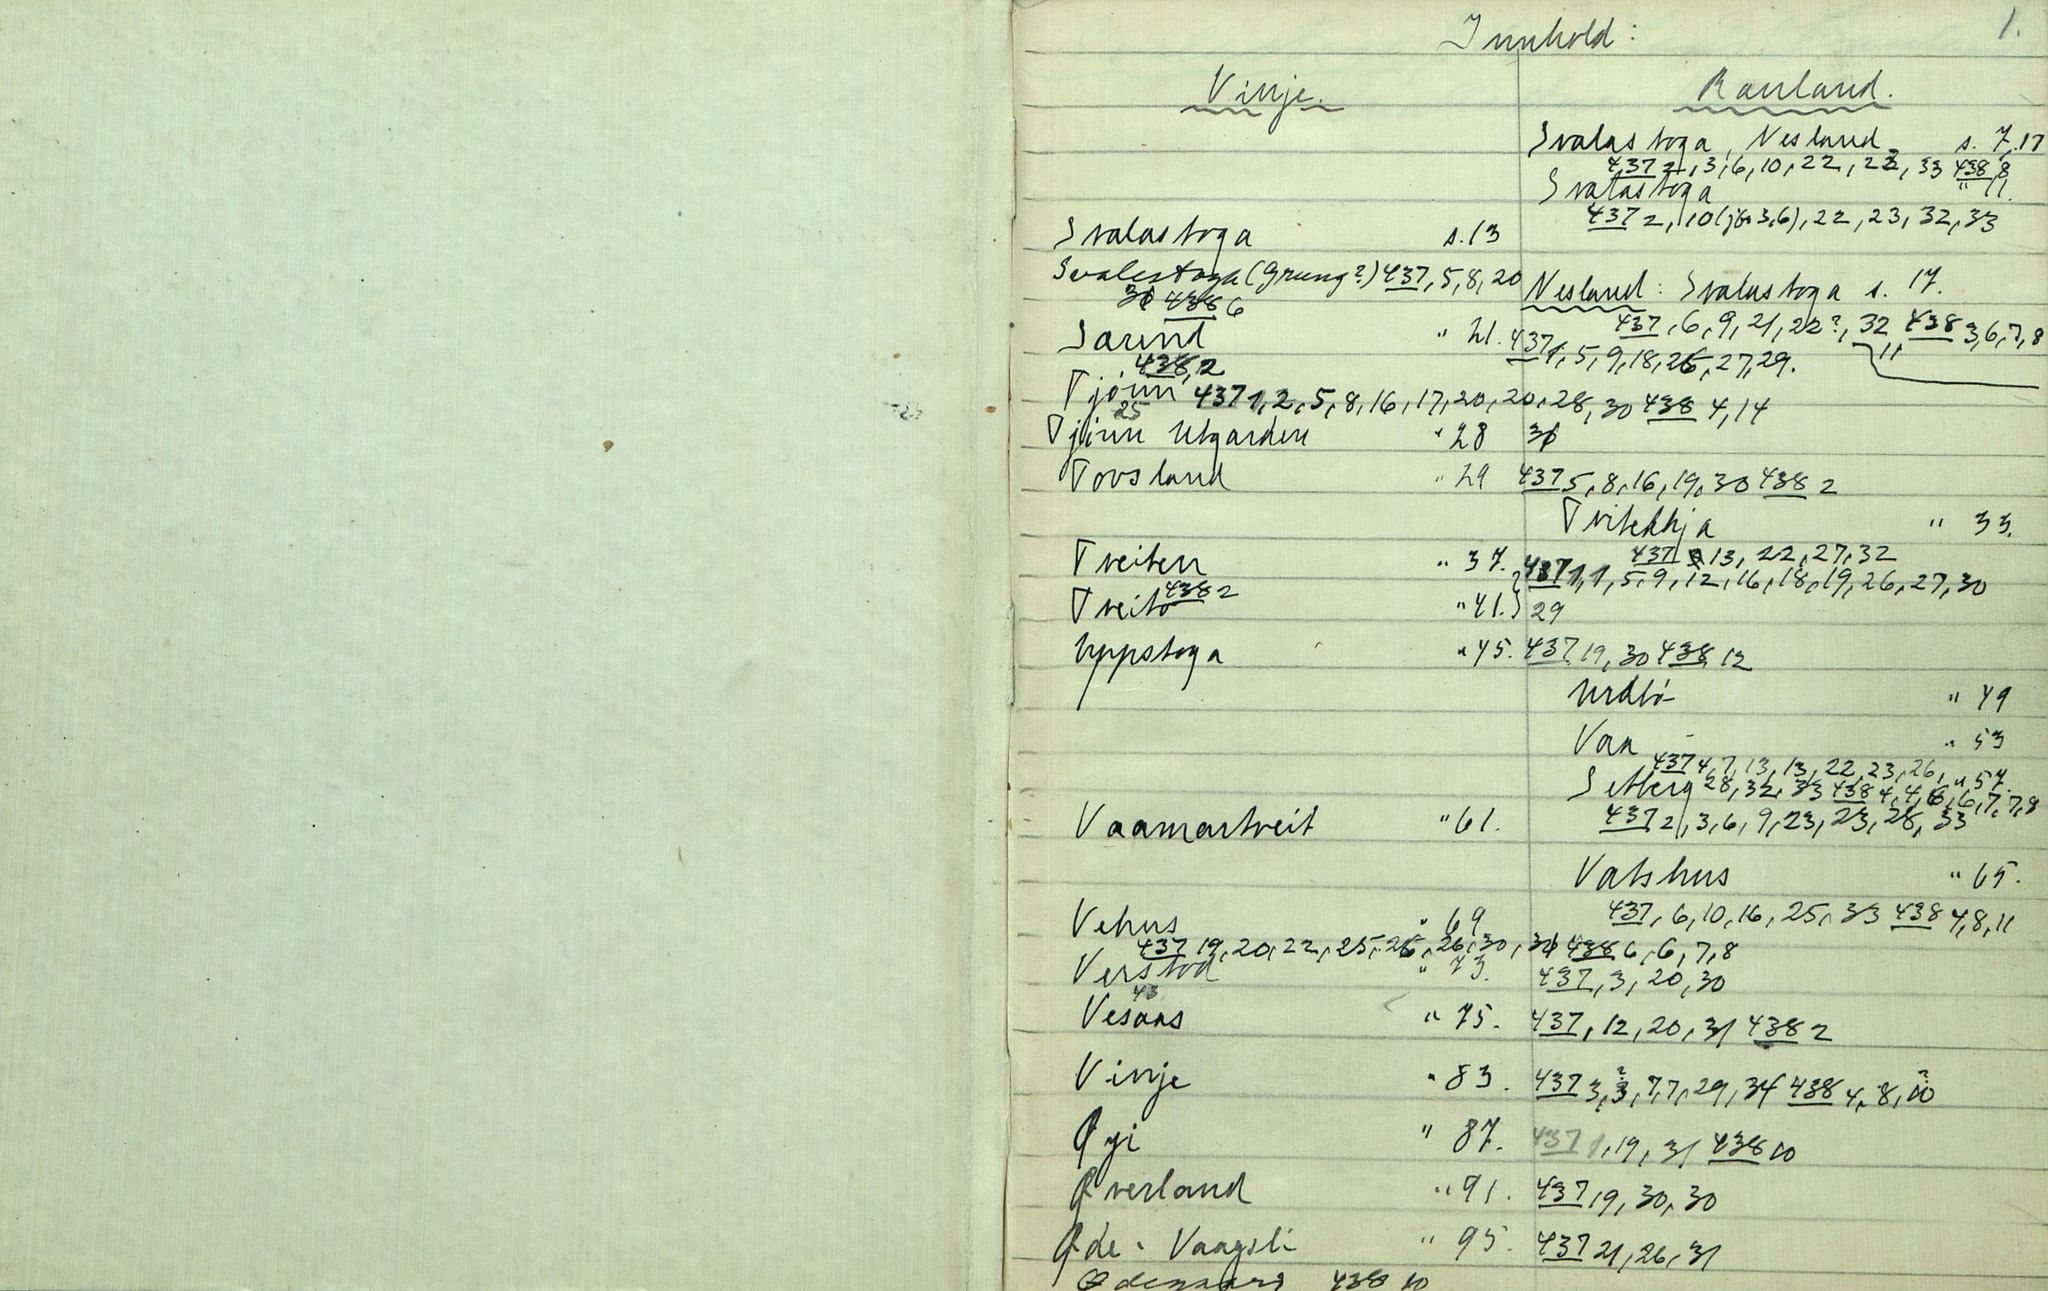 Innhold: 1.
Vinje. Rauland.
Svalastoga, Nesland s. 7, 17
437 2, 3, 6, 10, 22, 22, 33 438 8
Svalastoga " 11.
437 2, 10 (jfr 3, 6), 22, 23, 32, 33
Svalastoga s. 13
Svalestoga (Grung?) 437, 5, 8, 20
31 438 6
Nesland: Svalastoga s. 17.
437, 6, 9, 21, 22?, 32 438 3, 6, 7, 8
11
" 21. 437 1, 5, 9, 18, 26, 27, 29.
438, 2
Tjønn 437 1, 2, 5, 8, 16, 17, 20, 20, 28, 30 438 4, 14
25
Tjønn Utgarden " 28 31
Tovsland " 29 437 5, 8, 16, 19, 30 438 2
" 33.
437 13, 22, 27, 32
Tveiten " 37. 437 1, 1, 5, 9, 12, 16, 18, 19, 26, 27, 30
438 2
Tveito " 41. 29
Uppstoga " 45. 437 19, 30 438 12
Urdbø " 49
Vaa " 53
437 4, 7, 13, 13, 22, 23, 26,
28, 32, 33 438 4, 4, 6, 6, 7, 7, 8
Setberg " 57.
437 2, 3, 6, 9, 23, 23, 28, 33
Vaamartveit " 61.
Vatshus " 65.
437, 6, 10, 16, 25, 33 438 4, 8, 11
Vehus " 69
437 19, 20, 22, 25, 26, 26, 30, 31 438 6, 6, 7, 8
Verstod " 73. 437, 3, 20, 30
43
Vesaas " 75. 437, 12, 20, 31 438 2
Vinje " 83. 437 3, 3?, 7, 7, 29, 34 438 4, 8, 10?
Øyi " 87. 437 1, 19, 31 438 10
Øverland " 91. 437 19, 30, 30
Øde-Vaagsli " 95. 437 21, 26, 31
Ødegaard 438 10